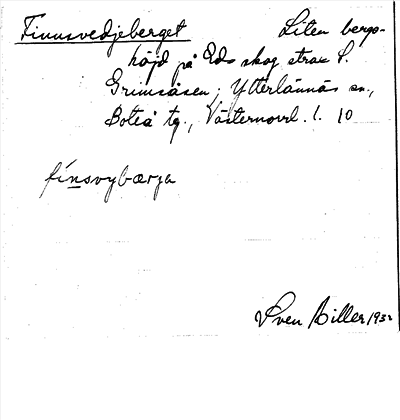 Finnsvedjeberget Liten bergs-
höjd på Eds skog strax S.
Grimsåsen; Ytterlännäs sn.,
Boteå tg., Västernorrl. l. 10
finsvybærja
Sven Biller 1932